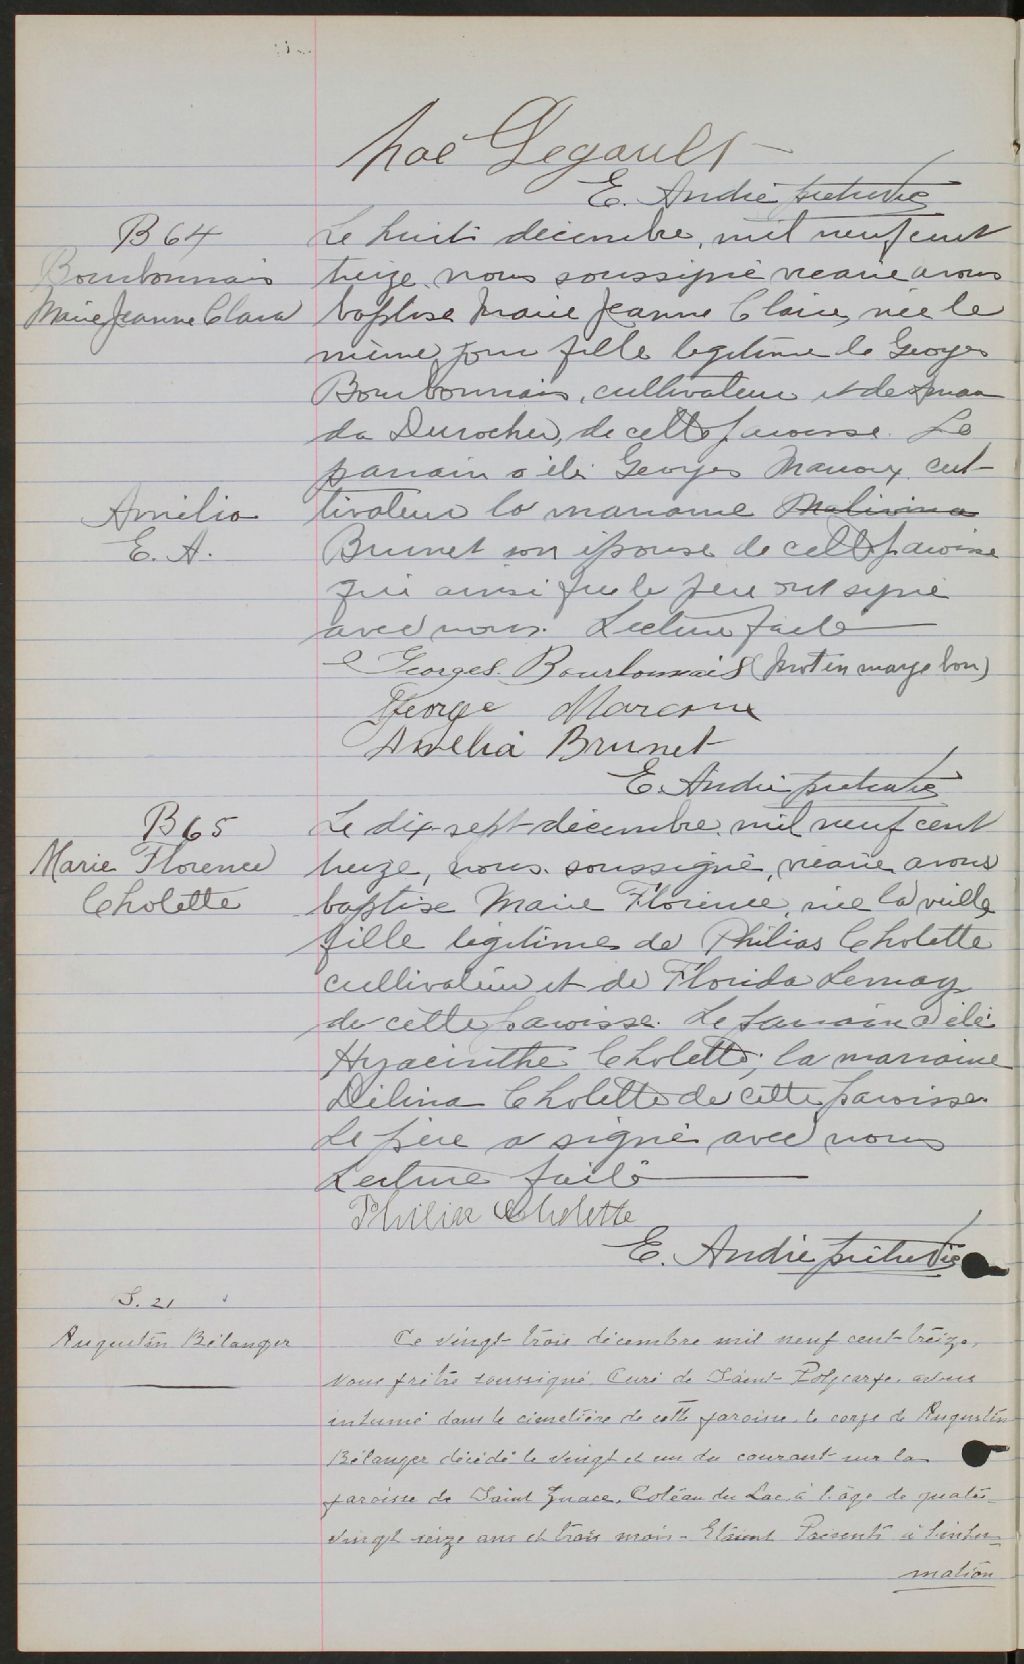 Noé Legault
E. André ptre vic
B 64
Bourbonnais
Marie Jeanne Clara
Le huit décembre, mil neuf cent
treize, nous soussigné vicaire avons
baptisé Marie Jeanne Claire, née le
même jour fille légitime de Georges
Bourbonnais, cultivateur et de Aman
da Durocher, de cette paroisse. Le
parrain a été Georges Marcoux cul-
tivateur la marraine Malvina
Amélia
E. A.
Brunet son épouse de cette paroisse
qui ainsi que le père ont signé
avec nous. Lecture faite
Georges Bourbonnais (mot en marge bon)
George Marcoux
Amélia Brunet
E. André ptre vic
B 65
Marie Florence
Cholette
Le dix-sept décembre, mil neuf cent
treize, nous soussigné, vicaire avons
baptisé Marie Florence, née la veille,
fille légitime de Philias Cholette
cultivateur et de Florida Lemay
de cette paroisse. Le parrain a été
Hyacinthe Cholette; la marraine
Délina Cholette de cette paroisse.
Le père a signé avec nous
Lecture faite
Philias Cholette
E. André prêtre vic
S. 21
Augustin Bélanger
Ce vingt-trois décembre mil neuf cent-treize,
Nous prêtre soussigné, Curé de Saint-Polycarpe, avons
inhumé dans le cimetière de cette paroisse, le corps de Augustin
Bélanger décédé le vingt et un du courant sur la
paroisse de Saint Ignace, Côteau du Lac, à l'âge de quatre-
vingt-seize ans et trois mois. Etaient Présents à l'inhu-
mation